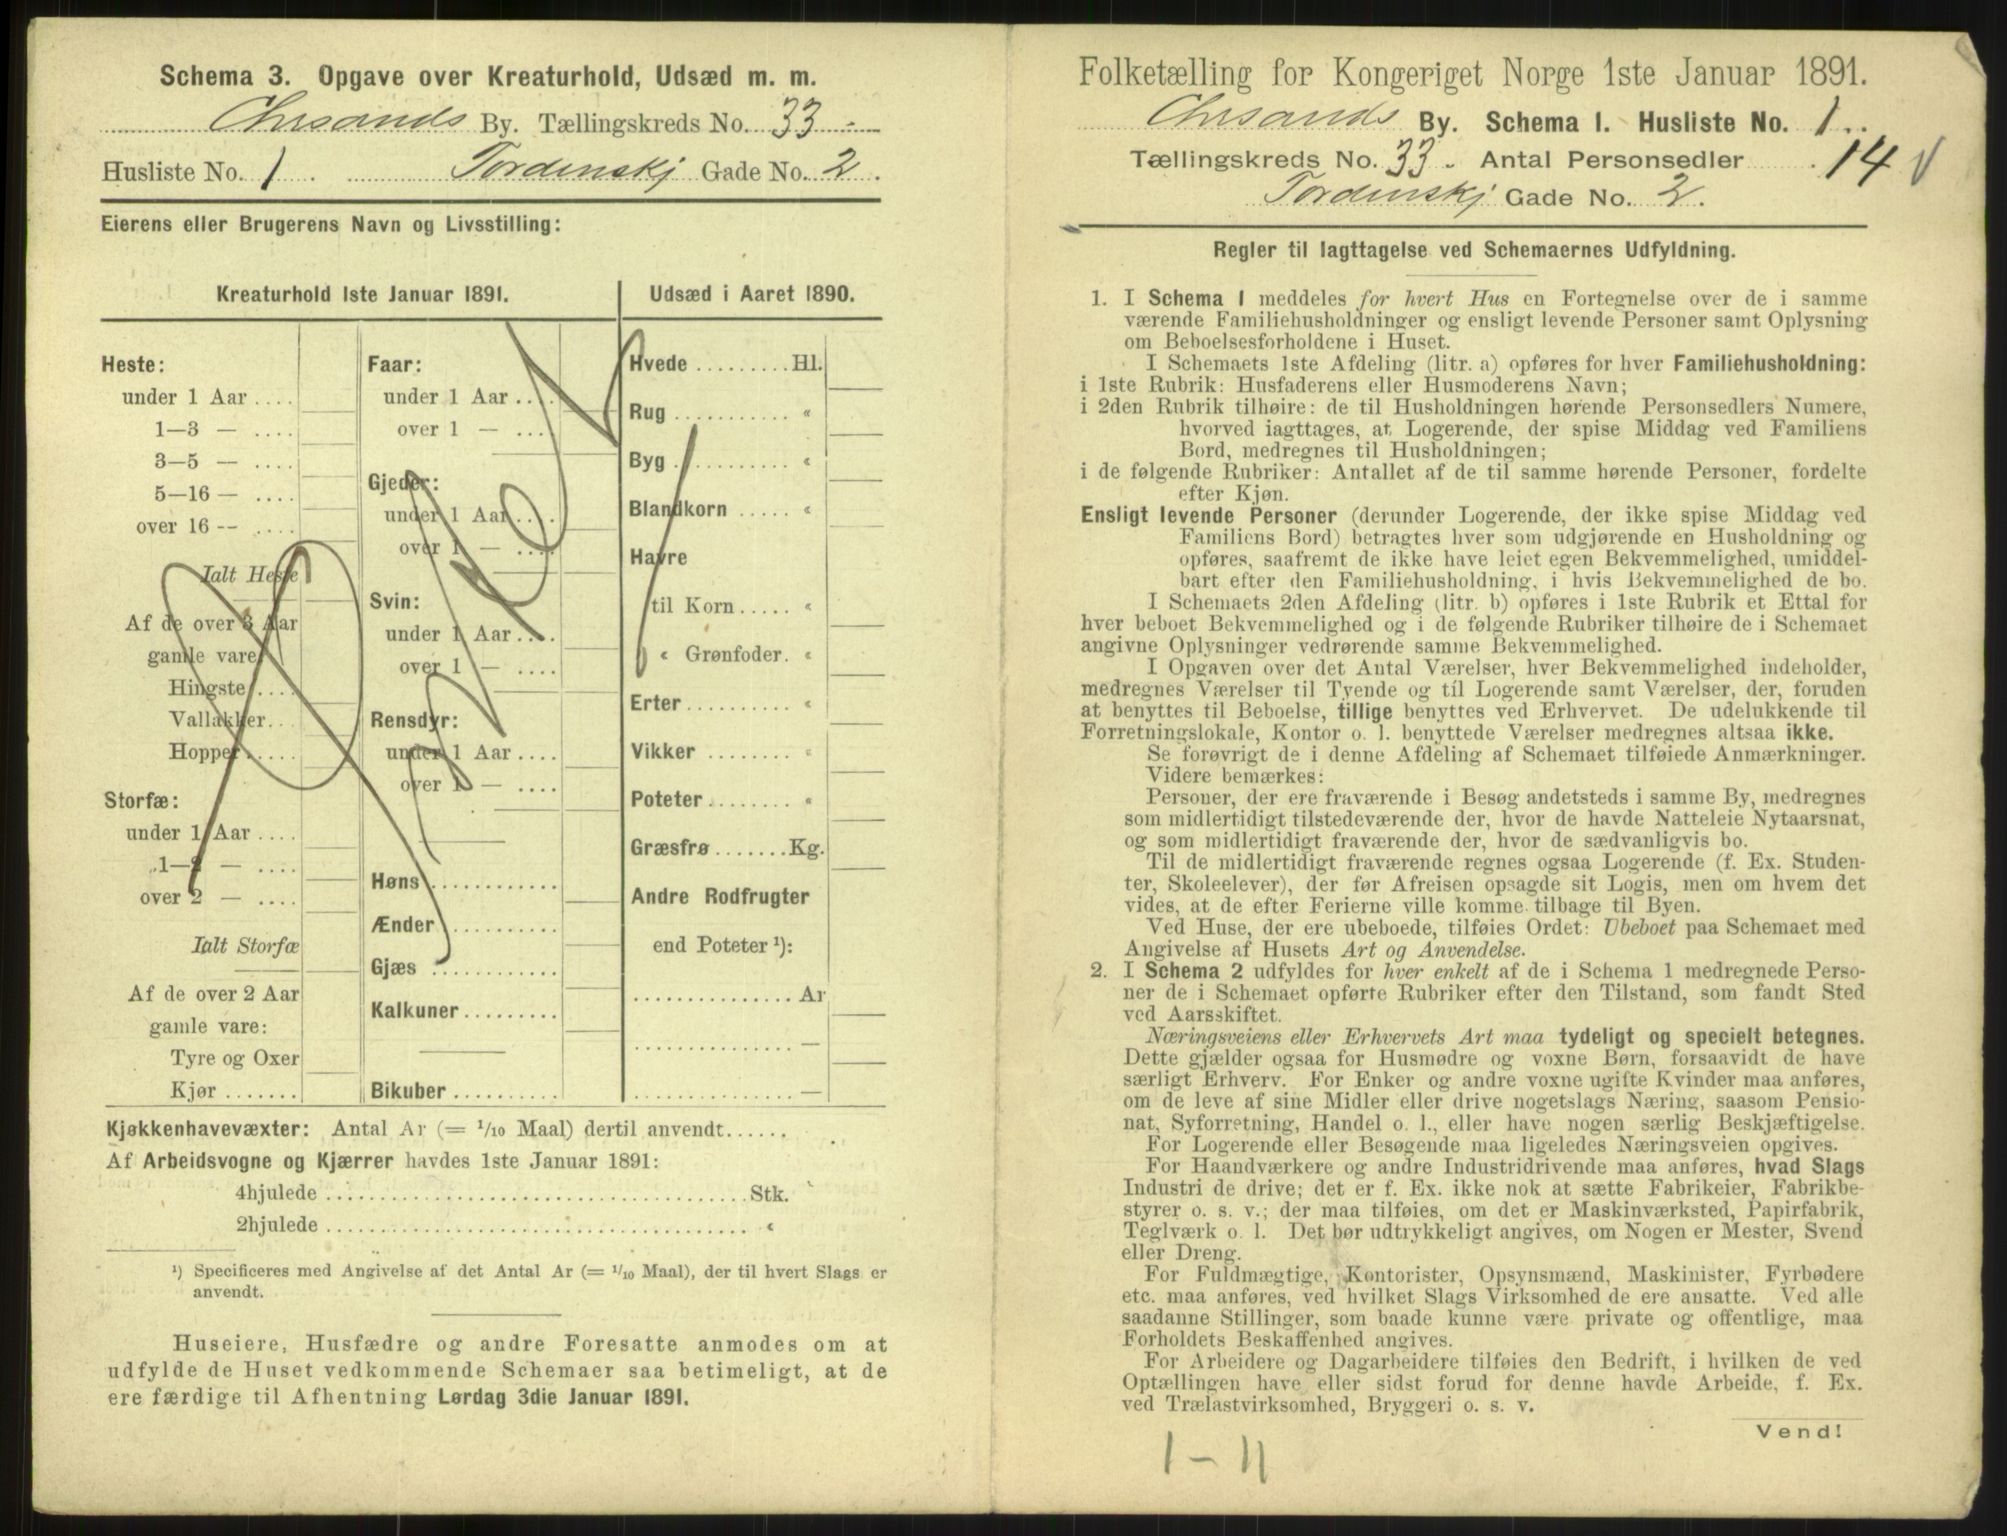 Schema 3. Opgave over Kreaturhold, Udsæd m. m.
Chrsands By. Tællingskreds No. 33
Husliste No. 1 Tordenskj Gade No. 2.
Eierens eller Brugerens Navn og Livsstilling:
Kreaturhold 1ste Januar 1891.
Heste:
under 1 Aar ....
1—3 — ....
3—5 — ....
5—16 — ....
over 16 — ....
Ialt Heste
Af de over 3 Aar
gamle vare:
Hingste ....
Vallakker....
Hopper ....
Storfæ:
under 1 Aar ....
1—2 — ....
over 2 — ....
Ialt Storfæ
Af de over 2 Aar
gamle vare:
Tyre og Oxer
Kjør .......
Faar:
under 1 Aar ....
over 1 — ....
Gjeder:
under 1 Aar ....
over 1 — ....
Svin:
under 1 Aar ....
over 1 — ....
Rensdyr:
under 1 Aar ....
over 1 — ....
Høns ............
Ænder ...........
Gjæs ............
Kalkuner.........
Bikuber ..........
Udsæd i Aaret 1890.
Hvede .........Hl.
Rug ........... «
Byg ........... «
Blandkorn ..... «
Havre
til Korn..... «
« Grønfoder. «
Erter.......... «
Vikker ........ «
Poteter........ «
Græsfrø.......Kg.
Andre Rodfrugter
end Poteter ¹):
...............Ar
............... —
............... —
Kjøkkenhavevæxter: Antal Ar (= 1/10 Maal) dertil anvendt......
Af Arbeidsvogne og Kjærrer havdes 1ste Januar 1891:
4hjulede ......................................Stk.
2hjulede ...................................... «
¹) Specificeres med Angivelse af det Antal Ar (= 1/10 Maal), der til hvert Slags er
anvendt.
Huseiere, Husfædre og andre Foresatte anmodes om at
udfylde de Huset vedkommende Schemaer saa betimeligt, at de
ere færdige til Afhentning Lørdag 3die Januar 1891.
Folketælling for Kongeriget Norge 1ste Januar 1891.
Chrsands By. Schema I. Husliste No. 1
Tællingskreds No. 33. Antal Personsedler 14
Tordenskj Gade No. 2.
Regler til Iagttagelse ved Schemaernes Udfyldning.
1. I Schema 1 meddeles for hvert Hus en Fortegnelse over de i samme
værende Familiehusholdninger og ensligt levende Personer samt Oplysning
om Beboelsesforholdene i Huset.
I Schemaets 1ste Afdeling (litr. a) opføres for hver Familiehusholdning:
i 1ste Rubrik: Husfaderens eller Husmoderens Navn;
i 2den Rubrik tilhøire: de til Husholdningen hørende Personsedlers Numere,
hvorved iagttages, at Logerende, der spise Middag ved Familiens
Bord, medregnes til Husholdningen;
i de følgende Rubriker: Antallet af de til samme hørende Personer, fordelte
efter Kjøn.
Ensligt levende Personer (derunder Logerende, der ikke spise Middag ved
Familiens Bord) betragtes hver som udgjørende en Husholdning og
opføres, saafremt de ikke have leiet egen Bekvemmelighed, umiddel-
bart efter den Familiehusholdning, i hvis Bekvemmelighed de bo.
I Schemaets 2den Afdeling (litr. b) opføres i 1ste Rubrik et Ettal for
hver beboet Bekvemmelighed og i de følgende Rubriker tilhøire de i Schemaet
angivne Oplysninger vedrørende samme Bekvemmelighed.
I Opgaven over det Antal Værelser, hver Bekvemmelighed indeholder,
medregnes Værelser til Tyende og til Logerende samt Værelser, der, foruden
at benyttes til Beboelse, tillige benyttes ved Erhvervet. De udelukkende til
Forretningslokale, Kontor o. l. benyttede Værelser medregnes altsaa ikke.
Se forøvrigt de i denne Afdeling af Schemaet tilføiede Anmærkninger.
Videre bemærkes:
Personer, der ere fraværende i Besøg andetsteds i samme By, medregnes
som midlertidigt tilstedeværende der, hvor de havde Natteleie Nytaarsnat,
og som midlertidigt fraværende der, hvor de sædvanligvis bo.
Til de midlertidigt fraværende regnes ogsaa Logerende (f. Ex. Studen-
ter, Skoleelever), der før Afreisen opsagde sit Logis, men om hvem det
vides, at de efter Ferierne ville komme tilbage til Byen.
Ved Huse, der ere ubeboede, tilføies Ordet: Ubeboet paa Schemaet med
Angivelse af Husets Art og Anvendelse.
2. I Schema 2 udfyldes for hver enkelt af de i Schema 1 medregnede Perso-
ner de i Schemaet opførte Rubriker efter den Tilstand, som fandt Sted
ved Aarsskiftet.
Næringsveiens eller Erhvervets Art maa tydeligt og specielt betegnes.
Dette gjælder ogsaa for Husmødre og voxne Børn, forsaavidt de have
særligt Erhverv. For Enker og andre voxne ugifte Kvinder maa anføres,
om de leve af sine Midler eller drive nogetslags Næring, saasom Pensio-
nat, Syforretning, Handel o. l., eller have nogen særlig Beskjæftigelse.
For Logerende eller Besøgende maa ligeledes Næringsveien opgives.
For Haandværkere og andre Industridrivende maa anføres, hvad Slags
Industri de drive; det er f. Ex. ikke nok at sætte Fabrikeier, Fabrikbe-
styrer o. s. v.; der maa tilføies, om det er Maskinværksted, Papirfabrik,
Teglværk o. l. Det bør udtrykkeligt angives, om Nogen er Mester, Svend
eller Dreng.
For Fuldmægtige, Kontorister, Opsynsmænd, Maskinister, Fyrbødere
etc. maa anføres, ved hvilket Slags Virksomhed de ere ansatte. Ved alle
saadanne Stillinger, som baade kunne være private og offentlige, maa
Forholdets Beskaffenhed angives.
For Arbeidere og Dagarbeidere tilføies den Bedrift, i hvilken de ved
Optællingen have eller sidst forud for denne havde Arbeide, f. Ex.
ved Trælastvirksomhed, Bryggeri o. s. v.
Vend!
1 – 11